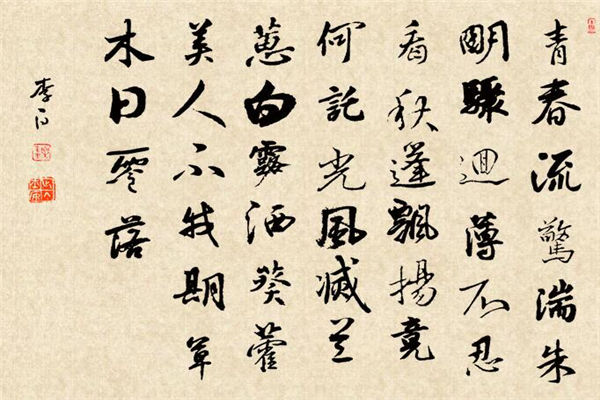 青春流驚湍朱
明驟迴薄不忍
看秋蓬飄揚竟
何託光風滅兰
蕙白露洒葵藿
美人不我期草
木日零落
李白